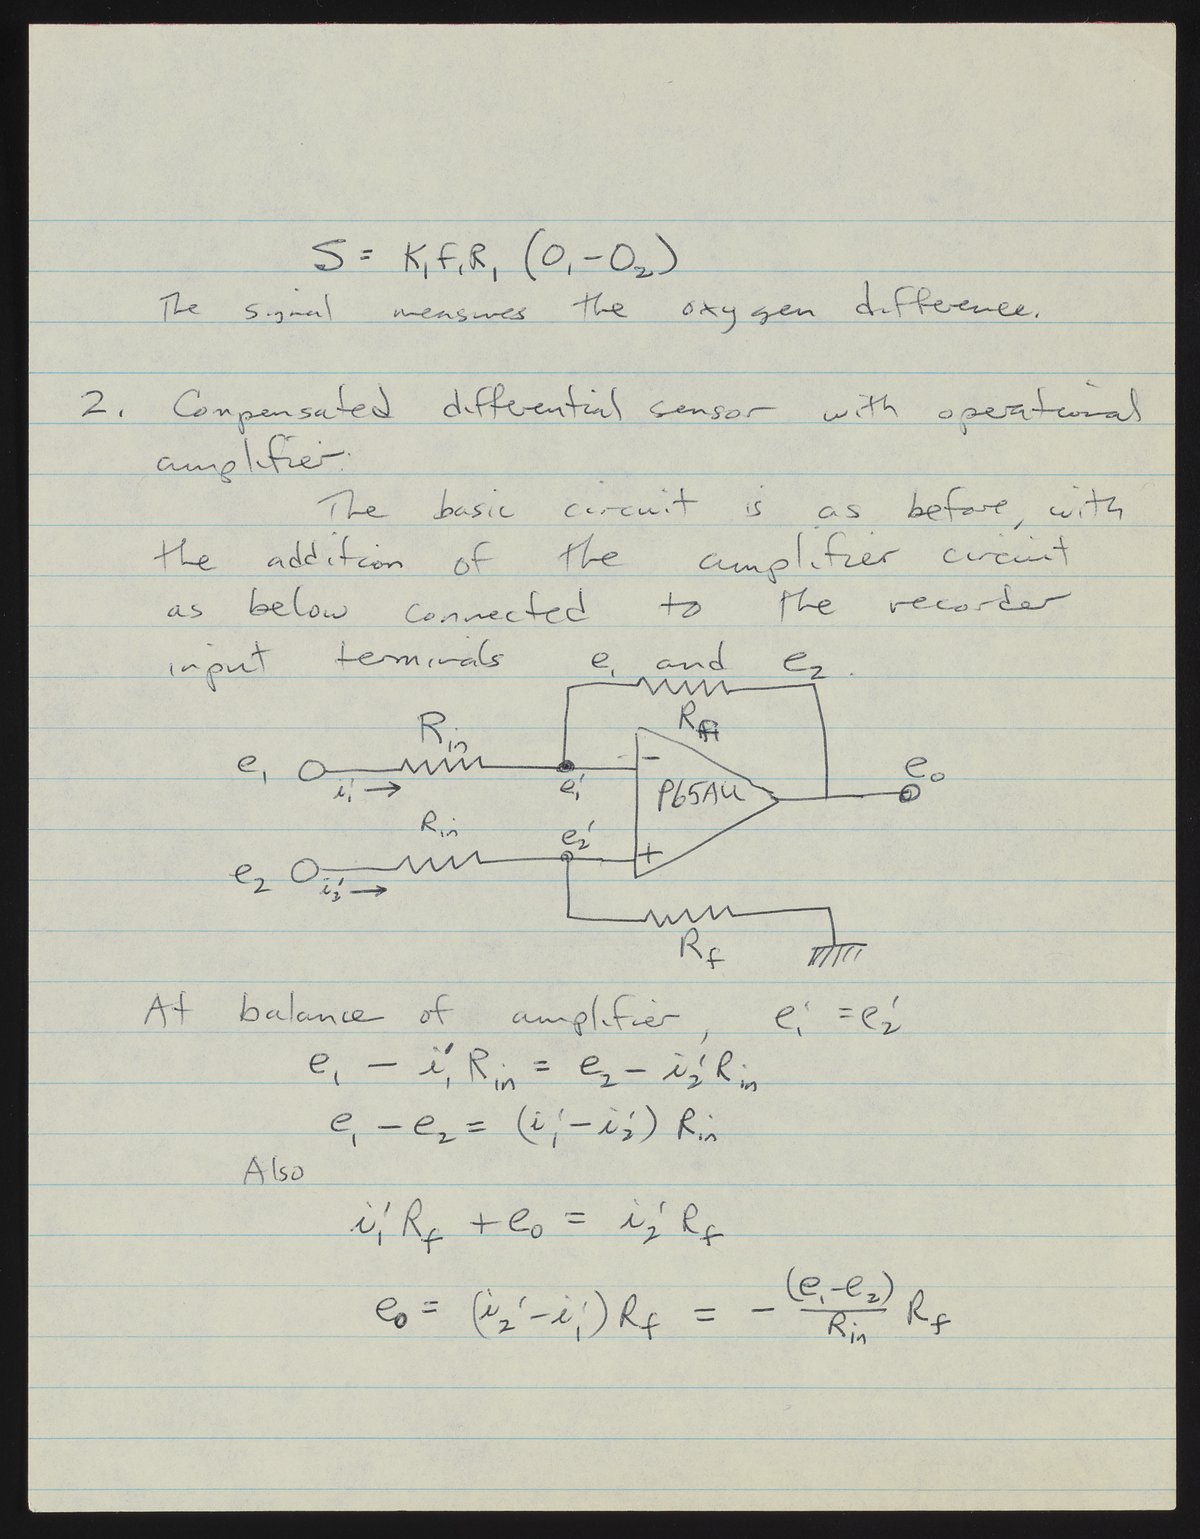 S = K₁f₁R₁ (O₁-O₂)
The signal measures the oxygen difference.
2. Compensated differential sensor with operational
amplifier.
The basic circuit is as before, with
the addition of the amplifier circuit
as below connected to the recorder
input terminals e₁ and e₂.
R
Rin
e₁ i₁' → e₁' - P65AU e₀
Rin e₂' +
e₂ i₂' →
Rf
At balance of amplifier, e₁' = e₂'
e₁ - i₁' Rin = e₂ - i₂' Rin
e₁ - e₂ = (i₁' - i₂') Rin
Also
i₁' Rf + e₀ = i₂' Rf
e₀ = (i₂' - i₁') Rf = - (e₁-e₂)/Rin Rf